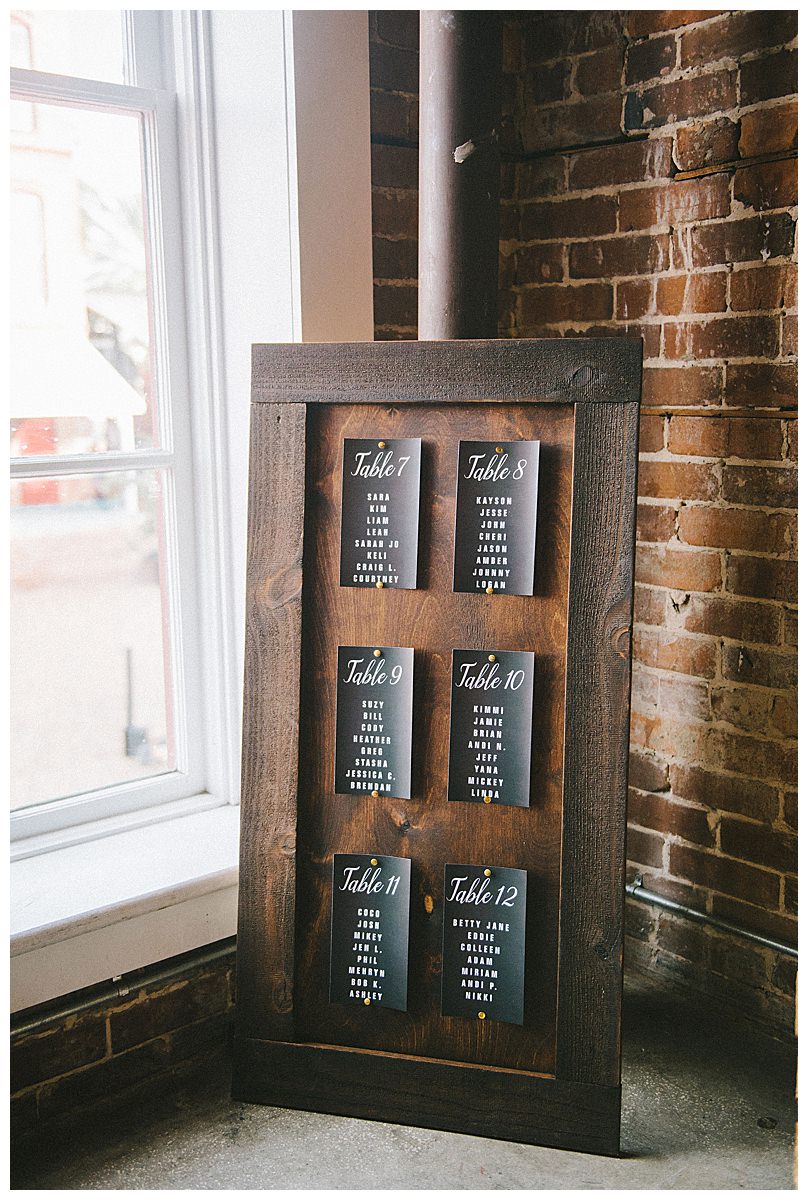 Table 7
SARA
KIM
LIAM
LEAH
SARAH JO
KELI
CRAIG L.
COURTNEY
Table 8
KAYSON
JESSE
JOHN
CHERI
JASON
AMBER
JOHNNY
LOGAN
Table 9
SUZY
BILL
CODY
HEATHER
GREG
STASHA
JESSICA C.
BRENDAN
Table 10
KIMMI
JAMIE
BRIAN
ANDI N.
JEFF
YANA
MICKEY
LINDA
Table 11
COCO
JOSH
MIKEY
JEN L.
PHIL
MEHRYN
BOB K.
ASHLEY
Table 12
BETTY JANE
EDDIE
COLLEEN
ADAM
MIRIAM
ANDI P.
NIKKI